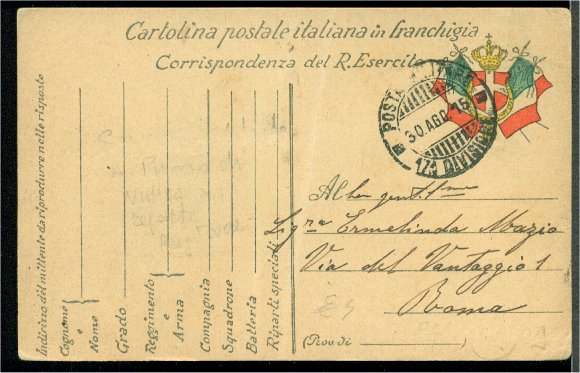 Cartolina postale italiana in franchigia
Corrispondenza del R. Esercito
POSTA MILITARE
30 AGO 15
17ª DIVISIONE
Indirizzo del mittente da riprodurre nelle risposte
Cognome e Nome
Grado
Reggimento e Arma
Compagnia
Squadrone
Batteria
Riparti speciali
Alla gent.ma
Sig.ra Ermelinda Mazio
Via del Vantaggio 1
Roma
(Prov. di